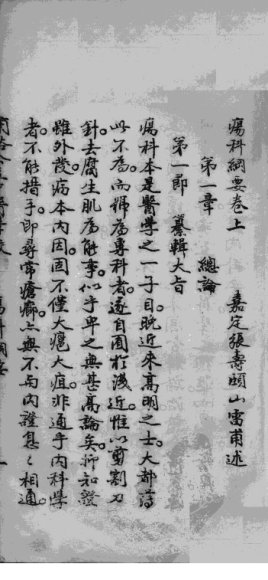 瘍科綱要卷上　嘉定張壽頤山雷甫述
第一章　總論
第一節　纂輯大旨
瘍科本是醫學之一子目。晚近來高明之士。大都薄
此不為。而號為專科者。遂自囿於淺近。惟以剪割刀
針去腐生肌為能事。似乎卑之無甚高論矣。抑知證
雖外發。病本內因。固不僅大瘍大疽。非通乎內科學
者不能措手。即尋常瘡癤。亦無不與內證息息相通。